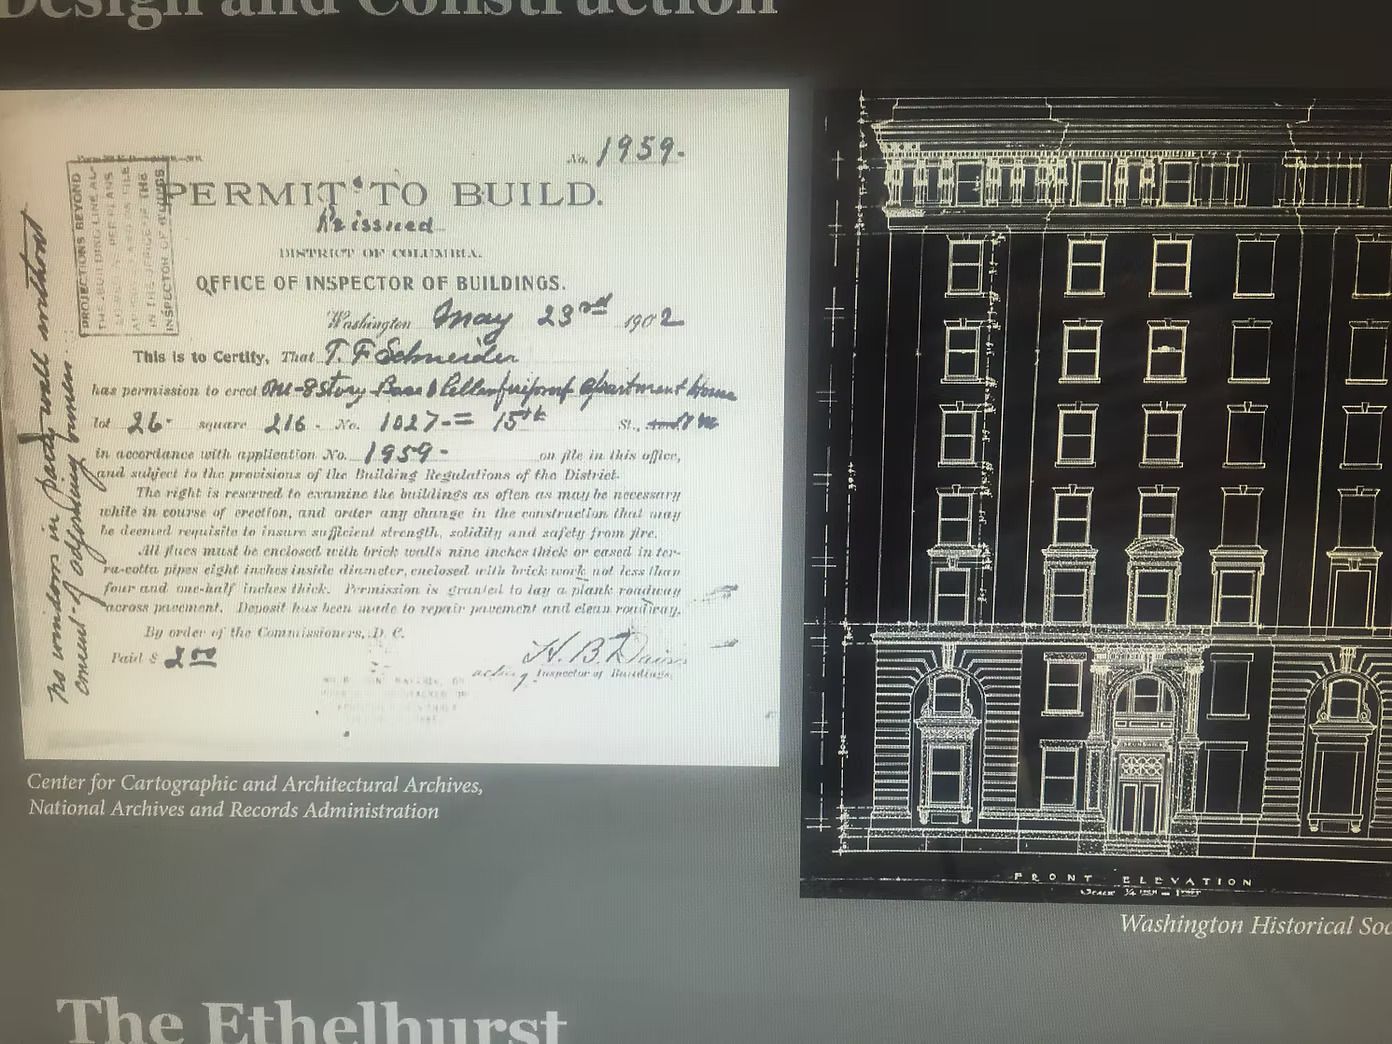 Design and Construction
No. 1959.
PERMIT TO BUILD.
Reissued
DISTRICT OF COLUMBIA.
OFFICE OF INSPECTOR OF BUILDINGS.
Washington May 23rd 1902
This is to Certify, That T. F Schneider
has permission to erect One-8 Story Base & Cellar fireproof Apartment House
lot 26 square 216 - No. 1027 - = 15th St.,
in accordance with application No. 1959 - on file in this office,
and subject to the provisions of the Building Regulations of the District.
The right is reserved to examine the buildings as often as may be necessary
while in course of erection, and order any change in the construction that may
be deemed requisite to insure sufficient strength, solidity and safety from fire.
All flues must be enclosed with brick walls nine inches thick or cased in ter-
ra-cotta pipes eight inches inside diameter, enclosed with brick work not less than
four and one-half inches thick. Permission is granted to lay a plank roadway
across pavement. Deposit has been made to repair pavement and clean roadway.
By order of the Commissioners, D. C.
Paid $ 2.00
H. B. Davis
acting Inspector of Buildings.
PROJECTIONS BEYOND
THE BUILDING LINE AL-
IN THE OFFICE OF THE
INSPECTOR OF BUILDINGS
no windows in party wall without
consent of adjoining owner
Center for Cartographic and Architectural Archives,
National Archives and Records Administration
FRONT ELEVATION
SCALE 1/4 INCH = 1 FOOT
Washington Historical Soc
The Ethelhurst